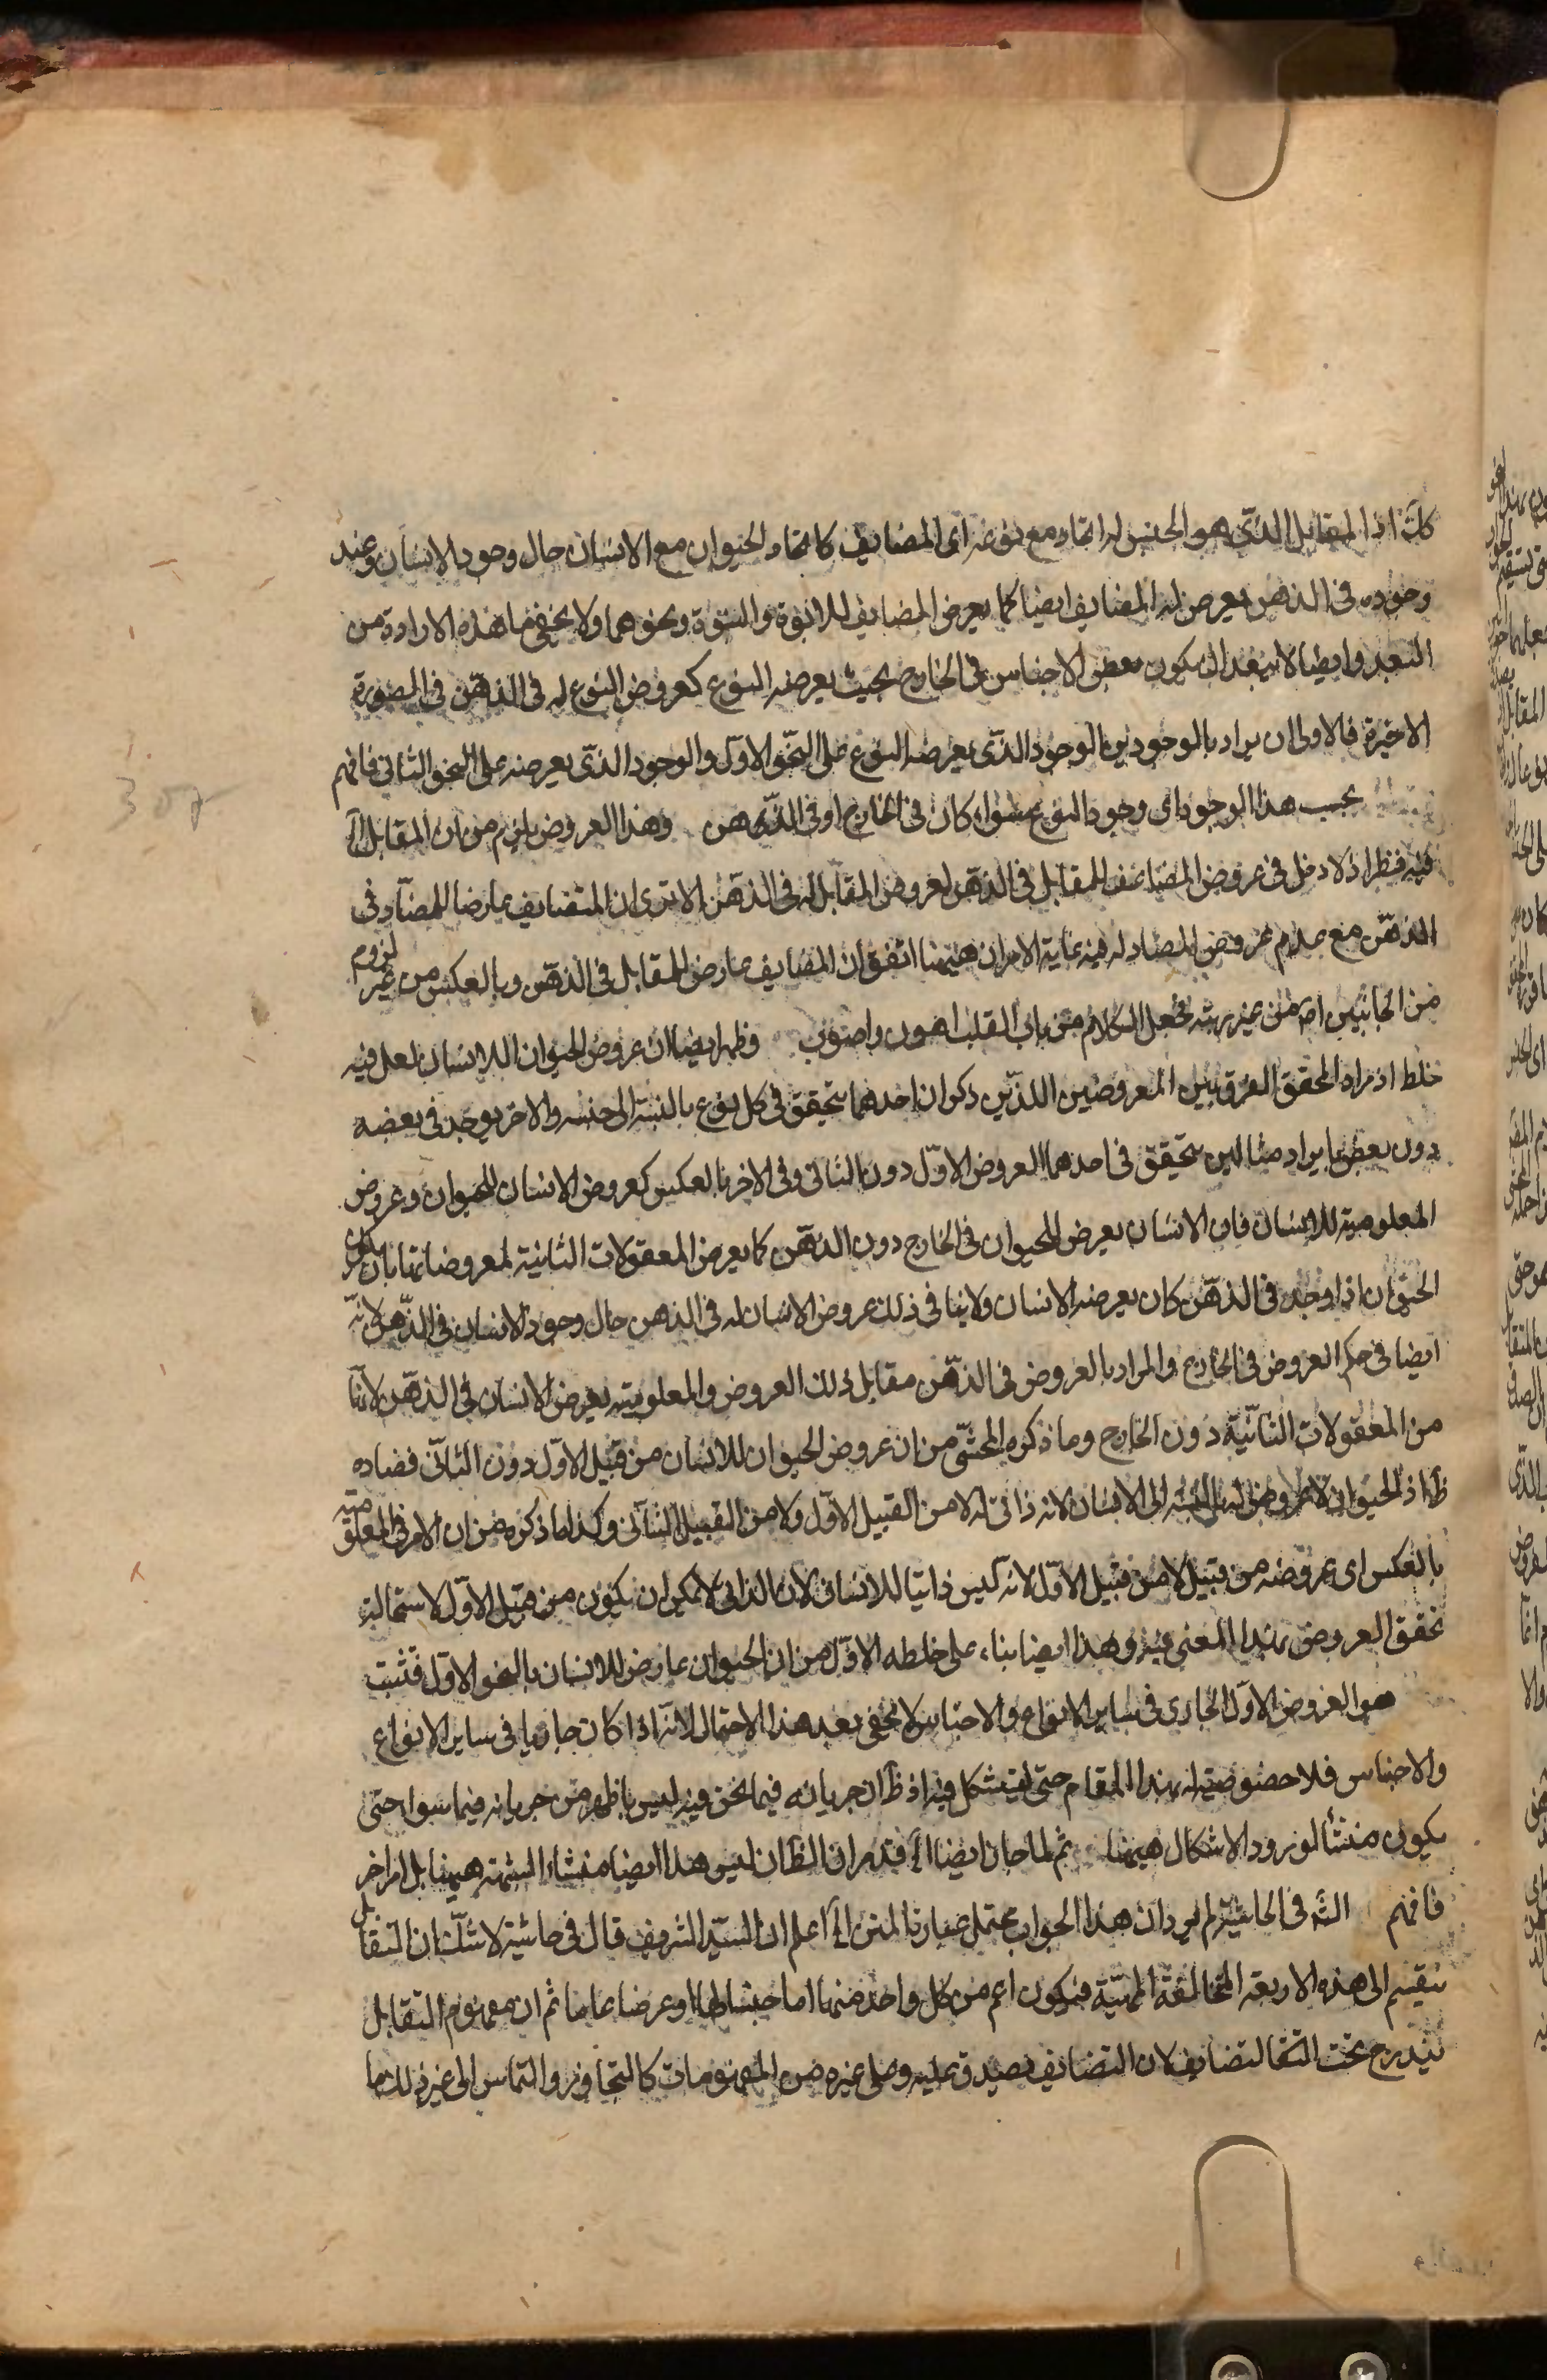 كك اذ المقابل الذى هو الجنس له اتحاد مع نوعه اى المضايف كاتحاد الحيوان مع الانسان حال وجود الانسان وعند
وجوده فى الذهن يعرض له المضايف ايضا كما يعرض المضايف للابوة والبنوة ونحوهما ولا يخفى ما هذه الارادة من
البعد وايضا لا يبعد ان يكون بعض الاجناس فى الخارج بحيث يعرضه النوع كعروض النوع له فى الذهن فى الصورة
الاخيرة فالاولى ان يراد بالوجودين الوجود الذى يعرضه النوع على النحو الاول والوجود الذى يعرضه على النحو الثانى فافهم
بحسب هذا الوجود اى وجود النوع سواء كان فى الخارج او فى الذهن وهذا العروض يلزم من ان المقابل الخ
فيه نظر اذ لا دخل فى عروض المضايف للمقابل فى الذهن لعروض المقابل له فى الذهن الا ترى ان المتضايف عارض للمضاد فى
الذهن مع عدم عروض المضاد له فيه غاية الامر ان ههنا اتفق ان المضايف عارض للمقابل فى الذهن وبالعكس من غير لزوم
من الجانبين او من غير مرتبه فجعل الكلام من باب القلب اهون واصوب وظهر ايضا ان عروض الحيوان للانسان لعل فيه
خلط اذ مراد المحقق الفرق بين المعروضين اللذين ذكر ان احدهما يتحقق فى كل نوع بالنسبة الى جنسه والاخر يوجد فى بعضه
دون بعض بايراد مثالين يتحقق فى احدهما العروض الاول دون الثانى وفى الاخر بالعكس كعروض الانسان للحيوان وعروض
المعلومية للانسان فان الانسان يعرض للحيوان فى الخارج دون الذهن كما يعرض المعقولات الثانية لمعروضاتها بان يكون
الحيوان اذا وجد فى الذهن كان يعرضه الانسان ولا ينافى ذلك عروض الانسان له فى الذهن حال وجود الانسان فى الذهن لانه
ايضا فى حكم العروض فى الخارج والمراد بالعروض فى الذهن مقابل ذلك العروض والمعلومية يعرض الانسان فى الذهن لانها
من المعقولات الثانية دون الخارج وما ذكره المحشى من ان عروض الحيوان للانسان من قبيل الاول دون الثانى ففساده
ظ اذ الحيوان لا عروض له بالنسبة الى الانسان لانه ذاتى له لا من القبيل الاول ولا من القبيل الثانى وكذا ما ذكره من ان الامر فى المعلومية
بالعكس اى عروضه من قبيل لا من قبيل الاول لانه ليس ذاتيا للانسان لان الذاتى لا يمكن ان يكون من قبيل الاول لاستحالة
تحقق العروض بهذا المعنى فيه وهذا ايضا بناء على خلطه الاول من ان الحيوان عارض للانسان بالنحو الاول فتثبت
هو العروض الاول الجارى فى ساير الانواع والاجناس لا يخفى بعد هذا الاحتمال لانه اذا كان جاريا فى ساير الانواع
والاجناس فلا خصوصية له بهذا المقام حتى يستشكل فيه اذ ظ ان جريانه فيما نحن فيه ليس باظهر من جريانه فيما سواه حتى
يكون منشأ لورود الاشكال ههنا ثم لما جاز ايضا الخ قد مر ان الظ ان ليس هذا ايضا منشاء الشبهة ههنا بل امر اخر
فافهم الشه فى الحاشية لم يرد ان هذا الجواب يحتمل عبارة المتن الخ اعلم ان السيد الشريف قال فى حاشيته لا شك ان التقابل
ينقسم الى هذه الاربعة المتخالفة الماهية فيكون اعم من كل واحد منها اما جنسا لها او عرضا عاما ثم ان مفهوم التقابل
يندرج تحت التضايف لان التضايف يصدق عليه وعلى غيره من المفهومات كالتجاور والتماس الى غير ذلك مما